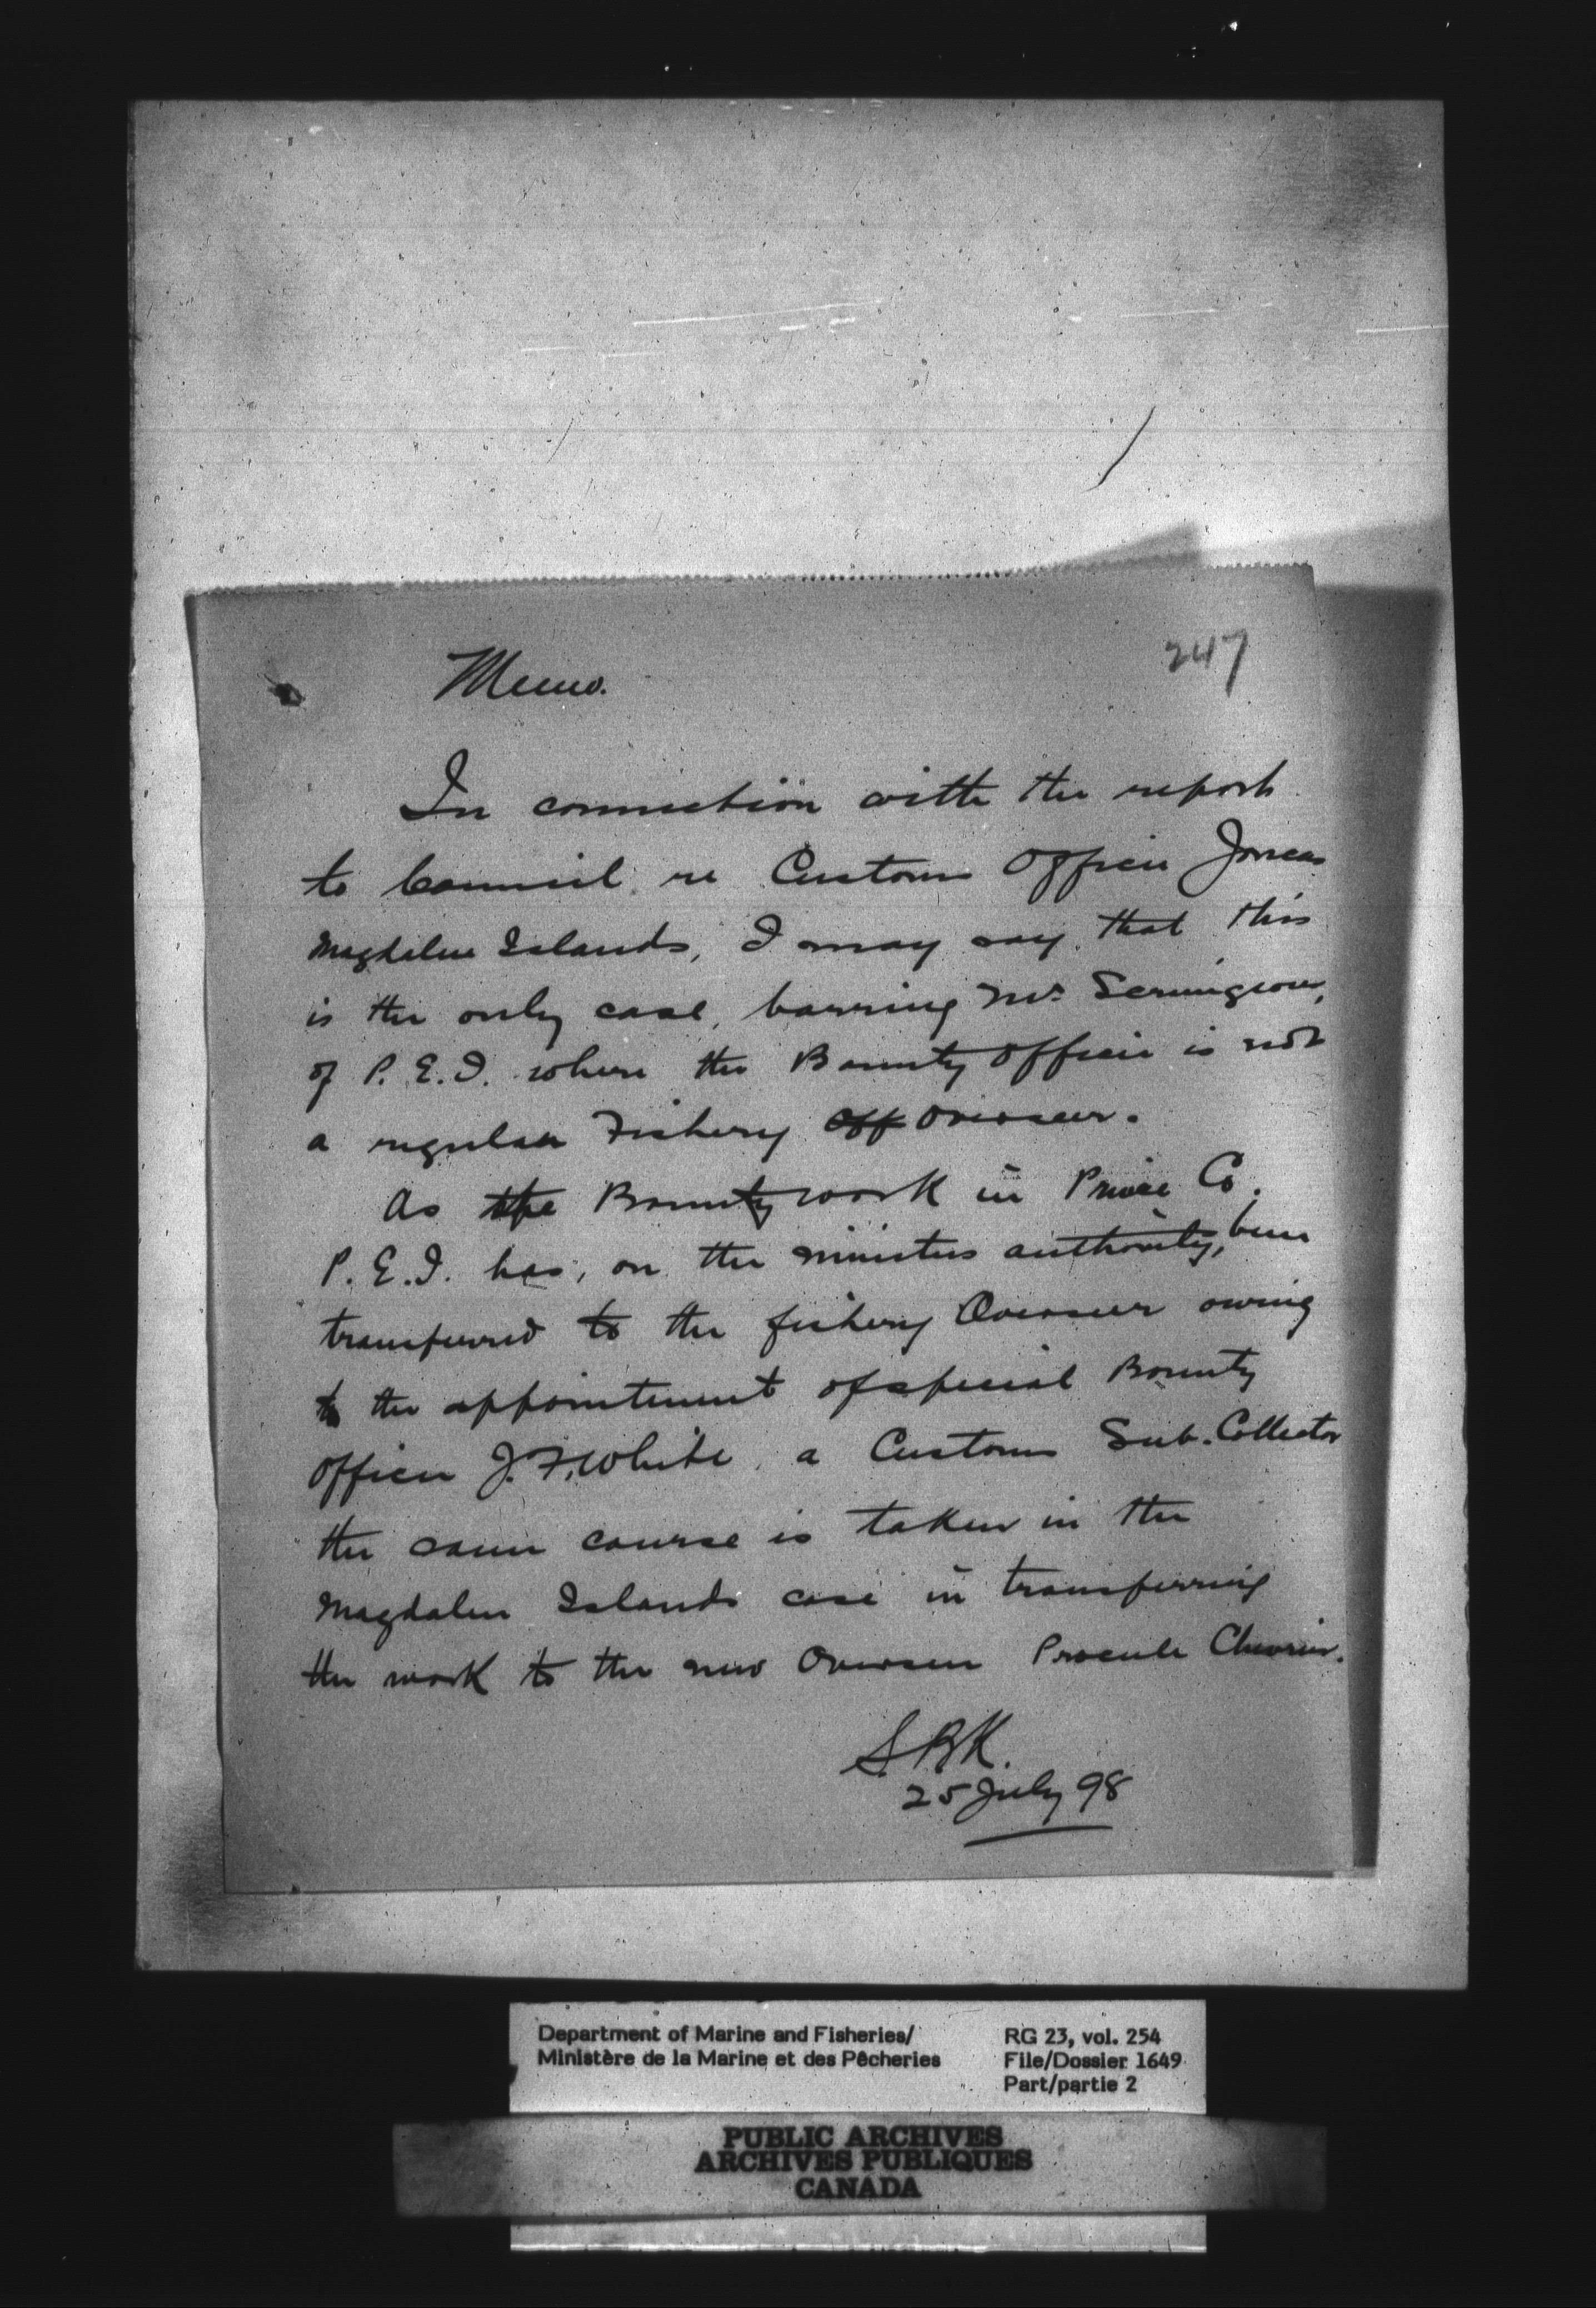 247
Memo.
In connection with the report
to Council re Customs Officer Joncas
Magdalen Islands, I may say that this
is the only case, barring Mr. Scrimgeour,
of P.E.I. where the Bounty officer is not
a regular Fishery Off Overseer.
As the Bounty work in Prince Co.
P.E.I. has, on the Ministers authority, been
transferred to the fishery Overseer owing
to the appointment of special Bounty
Officer J. F. White, a Customs Sub. Collector
the same course is taken in the
Magdalen Islands case in transferring
the work to the new Overseer Procule Chevrier.
S.B.K.
25 July 98
Department of Marine and Fisheries/
Ministère de la Marine et des Pêcheries
RG 23, vol. 254
File/Dossier 1649
Part/partie 2
PUBLIC ARCHIVES
ARCHIVES PUBLIQUES
CANADA